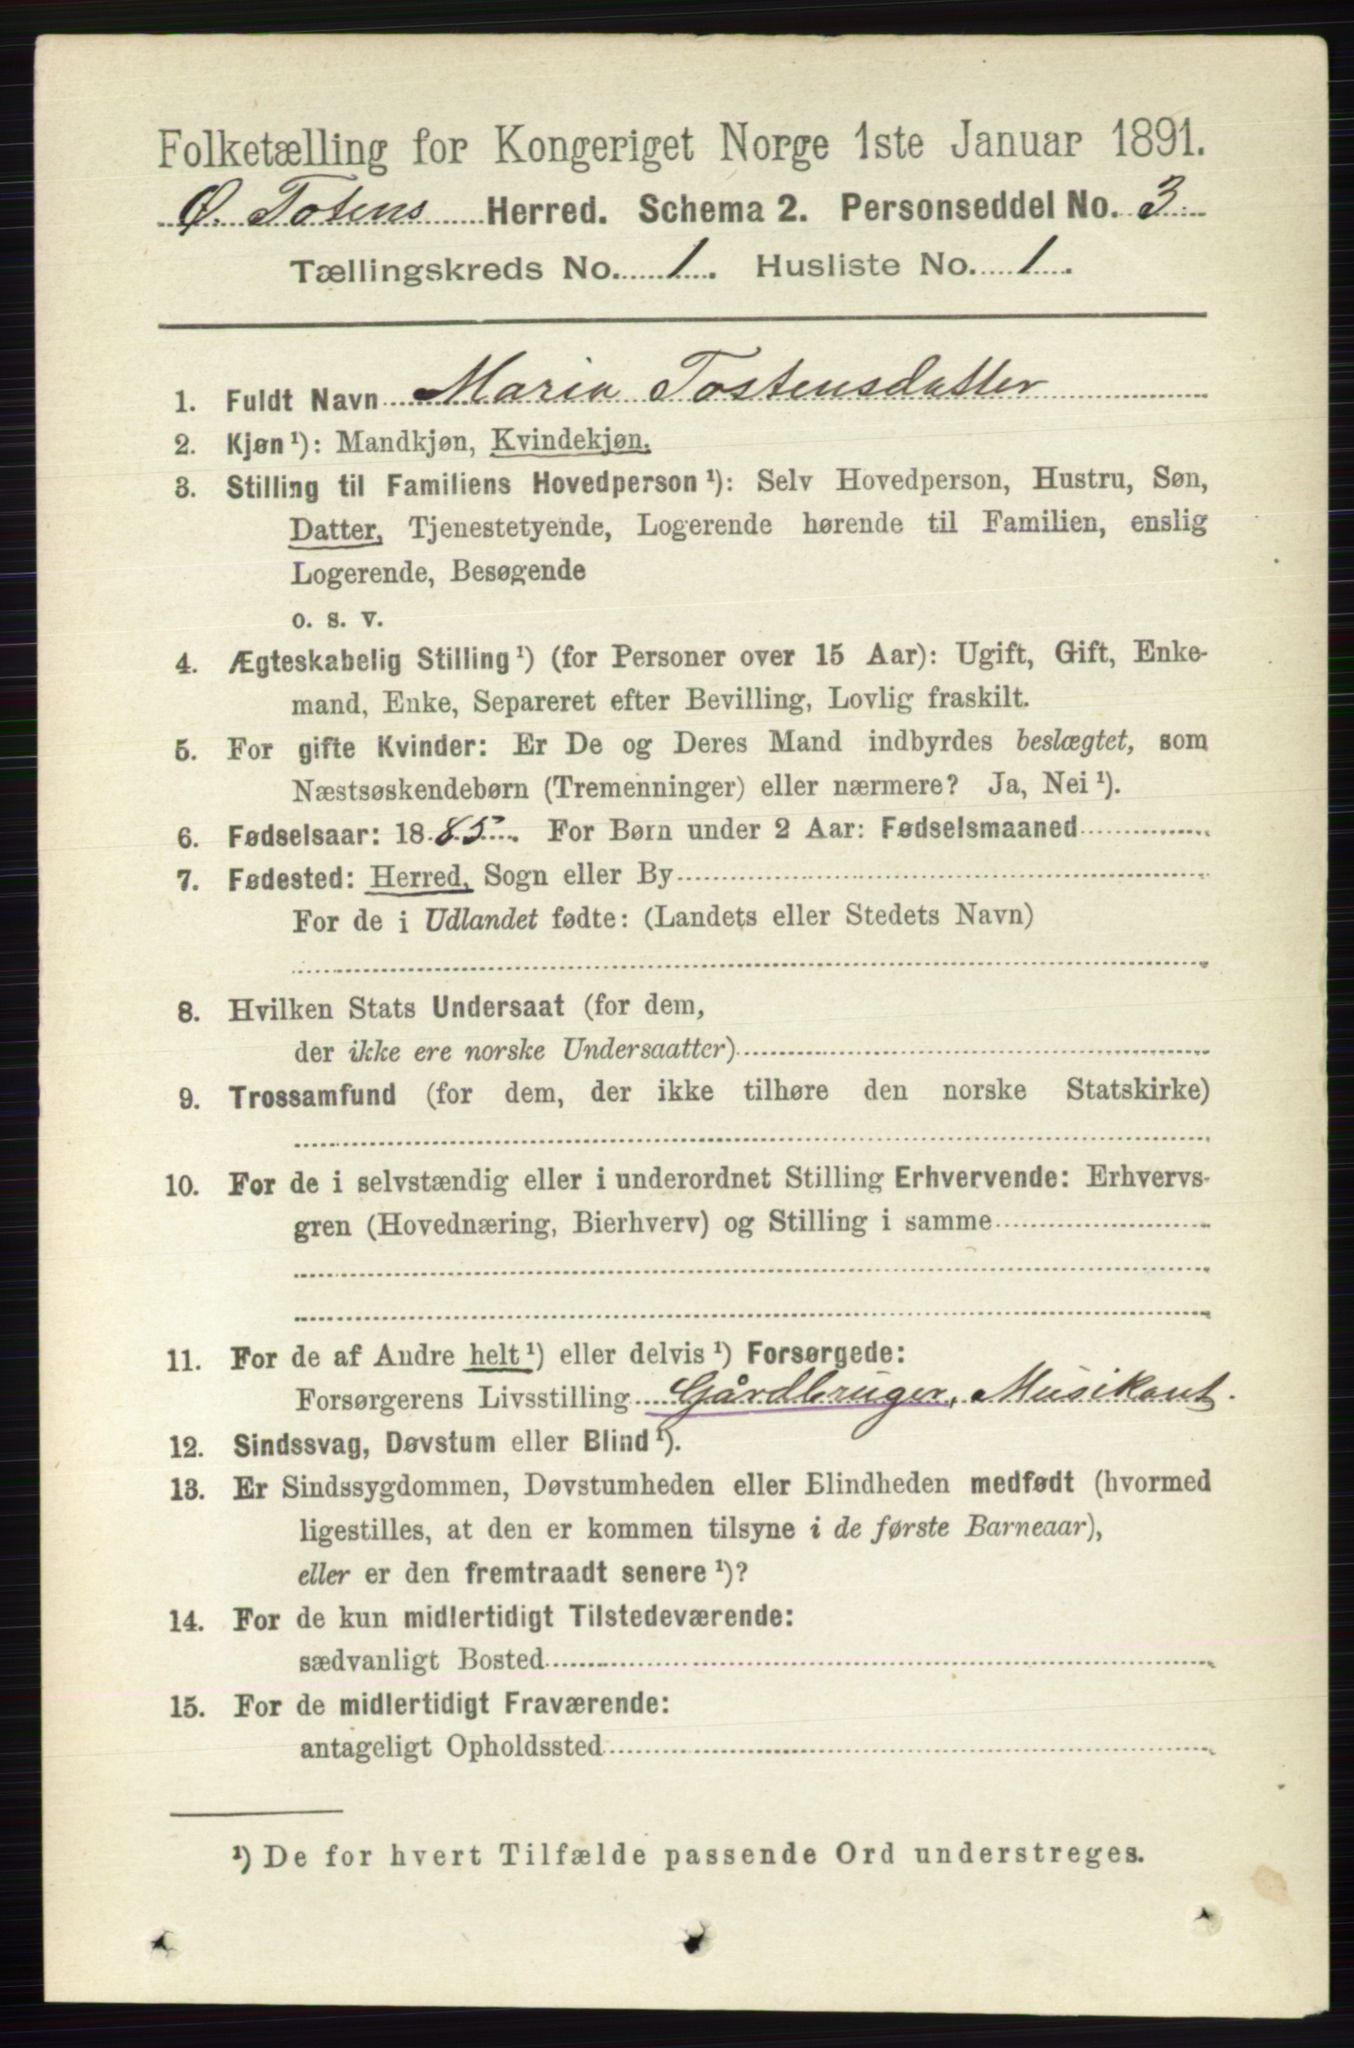 Folketælling for Kongeriget Norge 1ste Januar 1891.
Ø. Totens Herred. Schema 2. Personseddel No. 3
Tællingskreds No. 1. Husliste No. 1.
1. Fuldt Navn Maria Tostensdatter
2. Kjøn¹): Mandkjøn, Kvindekjøn.
3. Stilling til Familiens Hovedperson¹): Selv Hovedperson, Hustru, Søn,
Datter, Tjenestetyende, Logerende hørende til Familien, enslig
Logerende, Besøgende
o. s. v.
4. Ægteskabelig Stilling¹) (for Personer over 15 Aar): Ugift, Gift, Enke-
mand, Enke, Separeret efter Bevilling, Lovlig fraskilt.
5. For gifte Kvinder: Er De og Deres Mand indbyrdes beslægtet, som
Næstsøskendebørn (Tremenninger) eller nærmere? Ja, Nei¹).
6. Fødselsaar: 1885. For Børn under 2 Aar: Fødselsmaaned
7. Fødested: Herred, Sogn eller By
For de i Udlandet fødte: (Landets eller Stedets Navn)
8. Hvilken Stats Undersaat (for dem,
der ikke ere norske Undersaatter)
9. Trossamfund (for dem, der ikke tilhøre den norske Statskirke)
10. For de i selvstændig eller i underordnet Stilling Erhvervende: Erhvervs-
gren (Hovednæring, Bierhverv) og Stilling i samme
11. For de af Andre helt¹) eller delvis¹) Forsørgede:
Forsørgerens Livsstilling Gårdbruger, Musikant.
12. Sindssvag, Døvstum eller Blind¹).
13. Er Sindssygdommen, Døvstumheden eller Blindheden medfødt (hvormed
ligestilles, at den er kommen tilsyne i de første Barneaar),
eller er den fremtraadt senere¹)?
14. For de kun midlertidigt Tilstedeværende:
sædvanligt Bosted
15. For de midlertidigt Fraværende:
antageligt Opholdssted
¹) De for hvert Tilfælde passende Ord understreges.